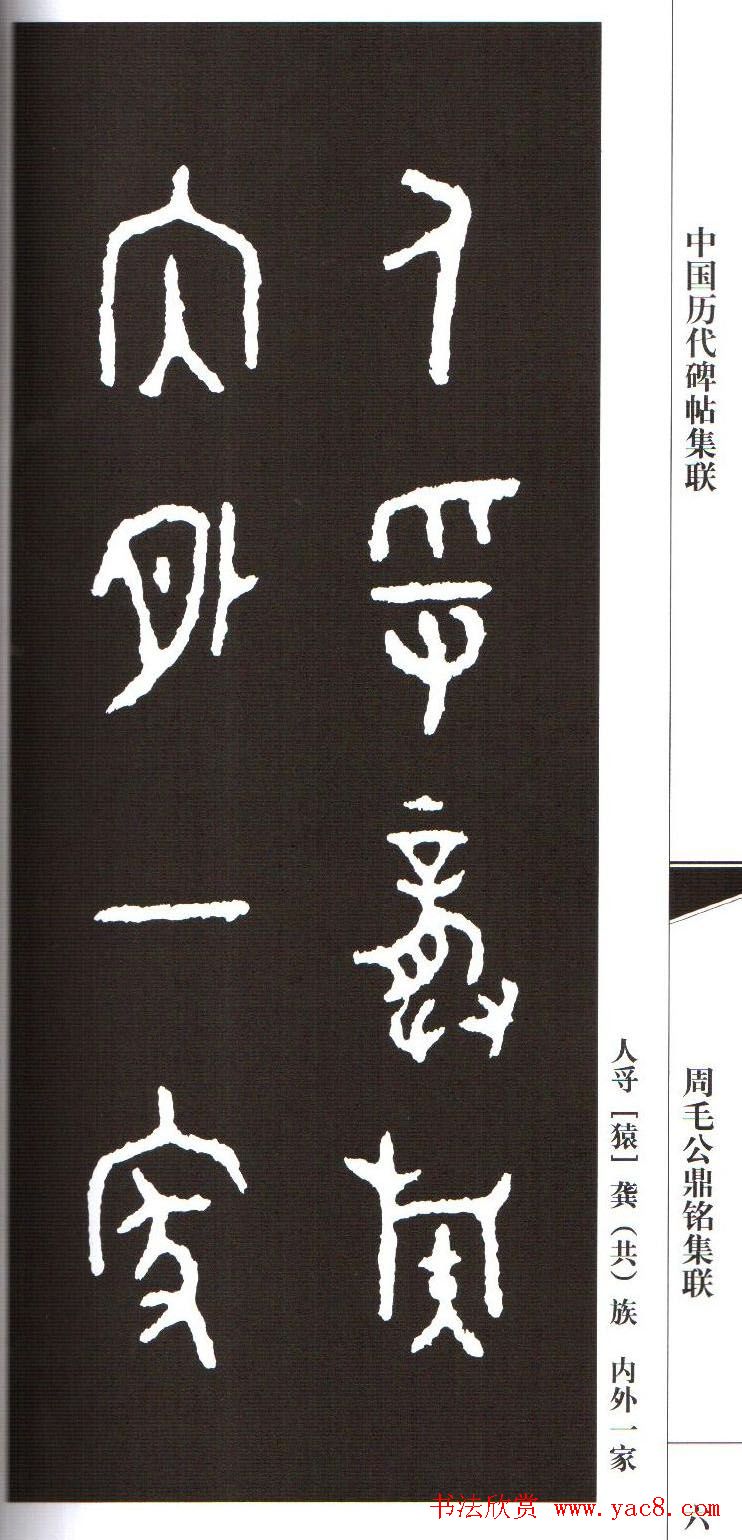 中国历代碑帖集联
周毛公鼎铭集联
六
人寽［猿］龚（共）族 内外一家
人寽龚族
内外一家
书法欣赏 www.yac8.com